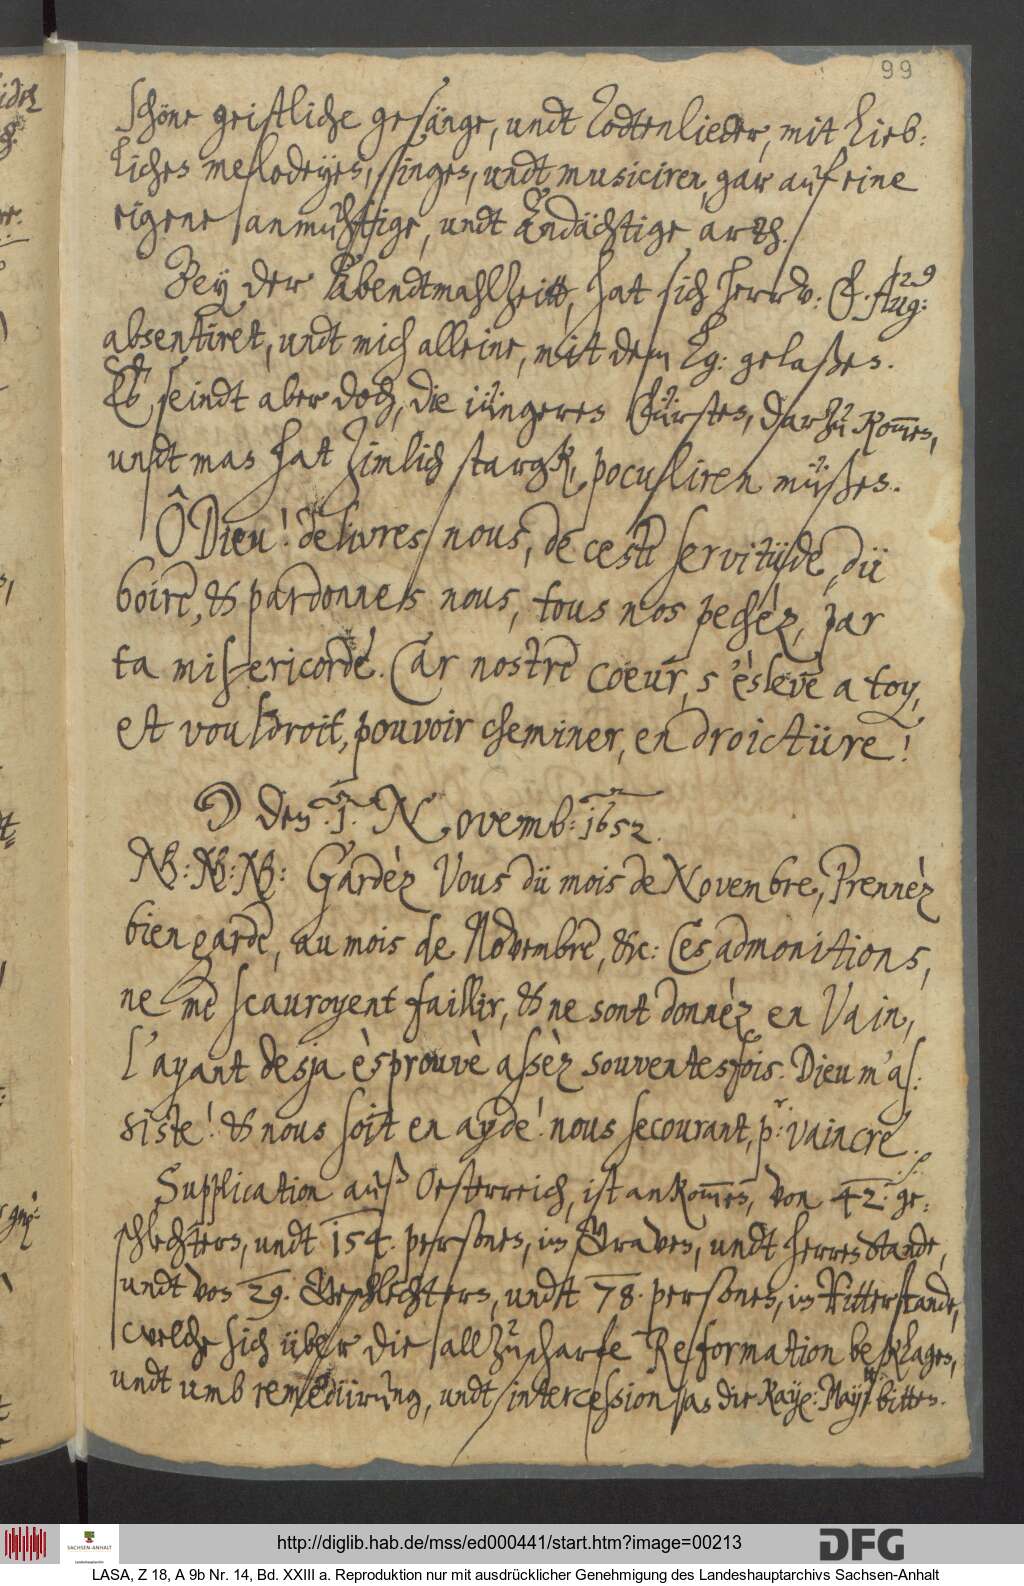 99
schöne geistliche gesänge, undt Todtenlieder, mit Lieb:
lichen melodeyen, singen, undt musiciren, gar auf eine
eigene anmühtige, undt Andächtige arth.
Bey der Abendtmahlzeitt, hat sich herr v: E. Aug:
absentiret, undt mich alleine, mit dem Eg: gelaßen.
Eß seindt aber doch, die iüngeren Fürsten, darzu kom̄en,
undt man hat zimlich starck, poculiren müßen.
Ô Dieu! delivres nous, de ceste servitüde, dü
boire, & pardonnes nous, tous nos pechéz, par
ta misericorde. Car nostre coeur, s'èsleve a toy,
et vouldroit, pouvoir cheminer, en droictüre!
☽ den: 1. Novemb: 1652.
NB: NB: NB: Gardèz Vous dü mois de Novembre, Prennèz
bien garde, au mois de Novembre, &c: Ces admonitions,
ne me scauroyent faillir, & ne sont donnèz en Vain,
l'ayant desja èsprouvè assèz souventesfois. Dieu m'as:
siste! & nous soit en ayde! nous secourant, pr: vaincre.
Supplication auß Oesterreich, ist ankom̄en, von 42. ge:
schlechtern, undt 154. personen, im Graven, undt herren stande,
undt von 29. Geschlechtern, undt 78. personen, im Ritterstande,
welche sich über die allzuscharfe Reformation beklagen,
undt umb remediirung, undt intercession an die Kay: May: bitten.
http://diglib.hab.de/mss/ed000441/start.htm?image=00213
SACHSEN-ANHALT
DFG
LASA, Z 18, A 9b Nr. 14, Bd. XXIII a. Reproduktion nur mit ausdrücklicher Genehmigung des Landeshauptarchivs Sachsen-Anhalt